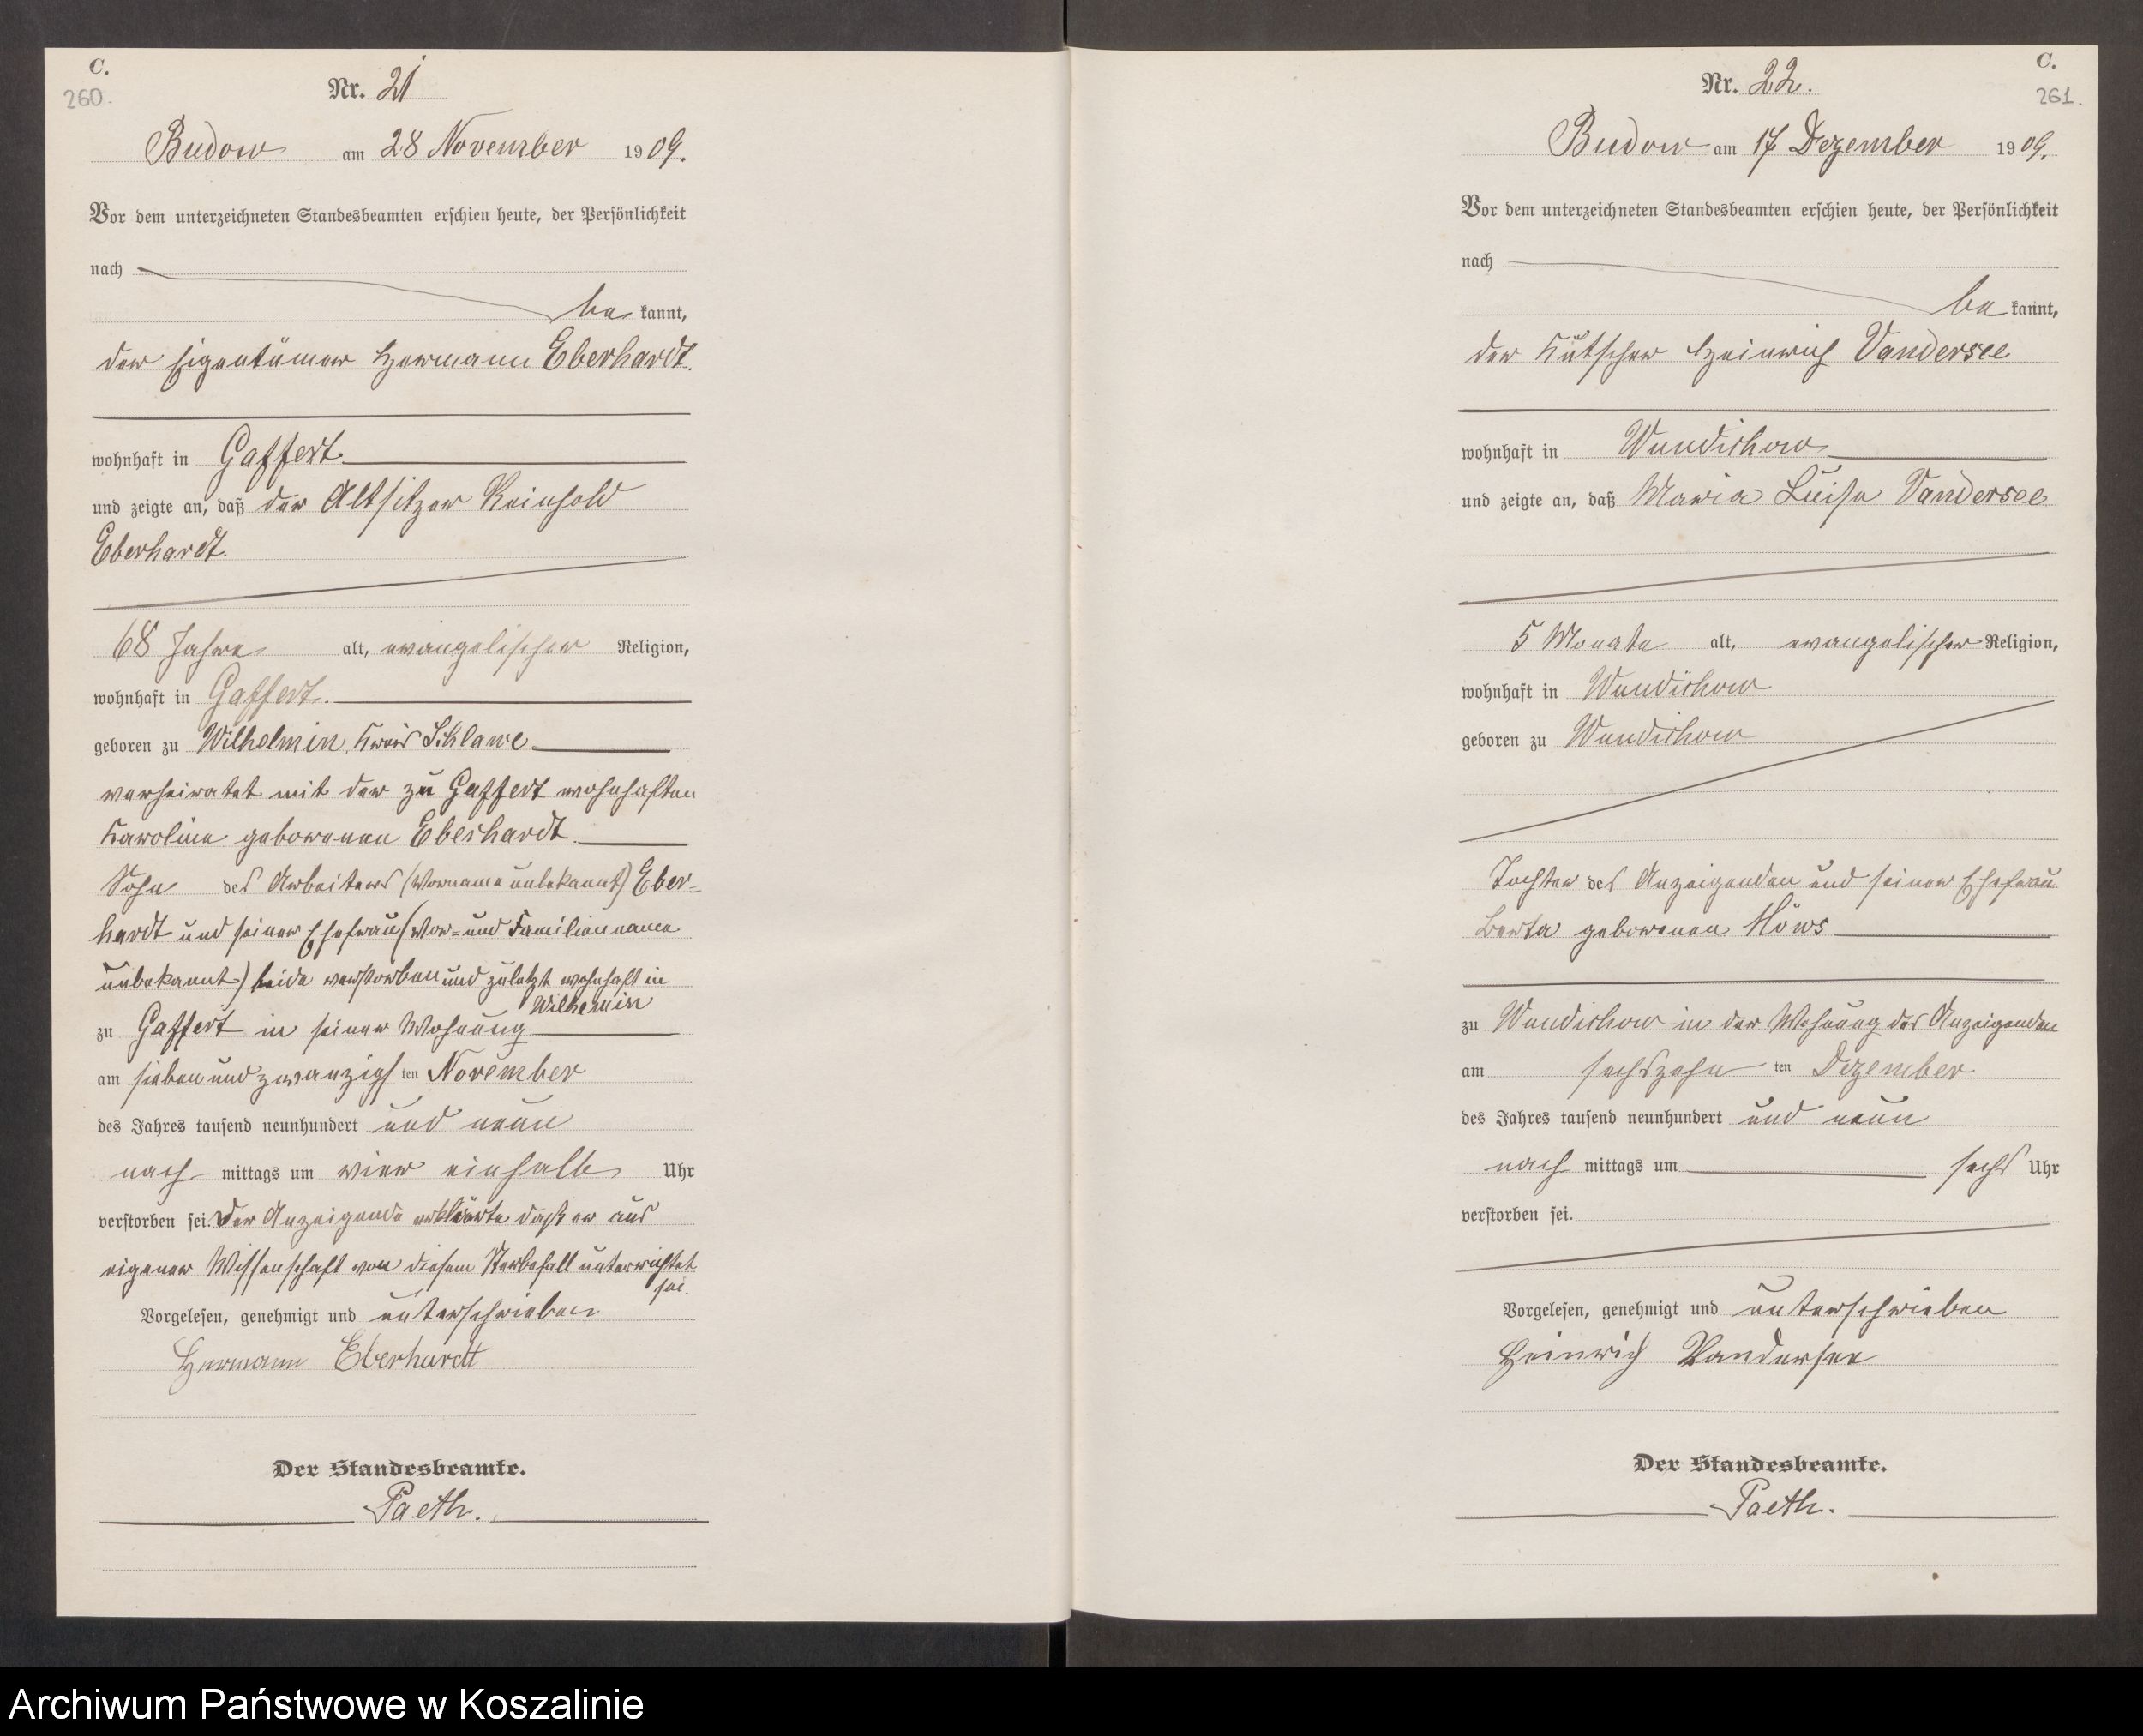 C.
260.
Nr. 21
Budow am 28 November 1909.
Vor dem unterzeichneten Standesbeamten erschien heute, der Persönlichkeit
nach
be kannt,
der Eigentümer Hermann Eberhardt.
wohnhaft in Gaffert
und zeigte an, daß der Altsitzer Reinhold
Eberhardt.
68 Jahre alt, evangelischer Religion,
wohnhaft in Gaffert.
geboren zu Wilhelmin, Kreis Schlawe
verheiratet mit der zu Gaffert wohnhaften
Karoline geborenen Eberhardt.
Sohn des Arbeiters (Vorname unbekannt) Eber-
hardt und seiner Ehefrau (Vor- und Familienname
unbekannt) beide verstorben und zuletzt wohnhaft in
Wilhemin
zu Gaffert in seiner Wohnung
am sieben und zwanzigsten November
des Jahres tausend neunhundert und neun
nach mittags um vier einhalb Uhr
verstorben sei. Der Anzeigende erklärte daß er aus
eigener Wissenschaft von diesem Sterbefall unterrichtet
sei.
Vorgelesen, genehmigt und unterschrieben
Hermann Eberhardt
Der Standesbeamte.
Paeth.
C.
261.
Nr. 22.
Budow am 17 Dezember 1909.
Vor dem unterzeichneten Standesbeamten erschien heute, der Persönlichkeit
nach
be kannt,
der Kutscher Heinrich Vandersee
wohnhaft in Wundichow
und zeigte an, daß Maria Luise Vandersee
5 Monate alt, evangelischer Religion,
wohnhaft in Wundichow
geboren zu Wundichow
Tochter des Anzeigenden und seiner Ehefrau
Berta geborenen Höws
zu Wundichow in der Wohnung des Anzeigenden
am sechszehn ten Dezember
des Jahres tausend neunhundert und neun
nach mittags um sechs Uhr
verstorben sei.
Vorgelesen, genehmigt und unterschrieben
Heinrich Vandersee
Der Standesbeamte.
Paeth.
Archiwum Państwowe w Koszalinie